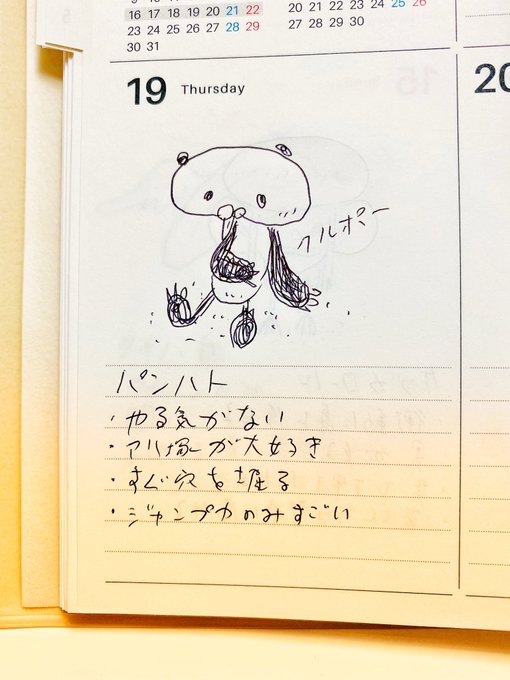 16 17 18 19 20 21 22
23 24 25 26 27 28 29
30 31
20 21 22 23 24 25 26
27 28 29 30
19 Thursday
20
クルポー
パンハト
・やる気がない
・アリ塚が大好き
・すぐ穴を掘る
・ジャンプ力のみすごい